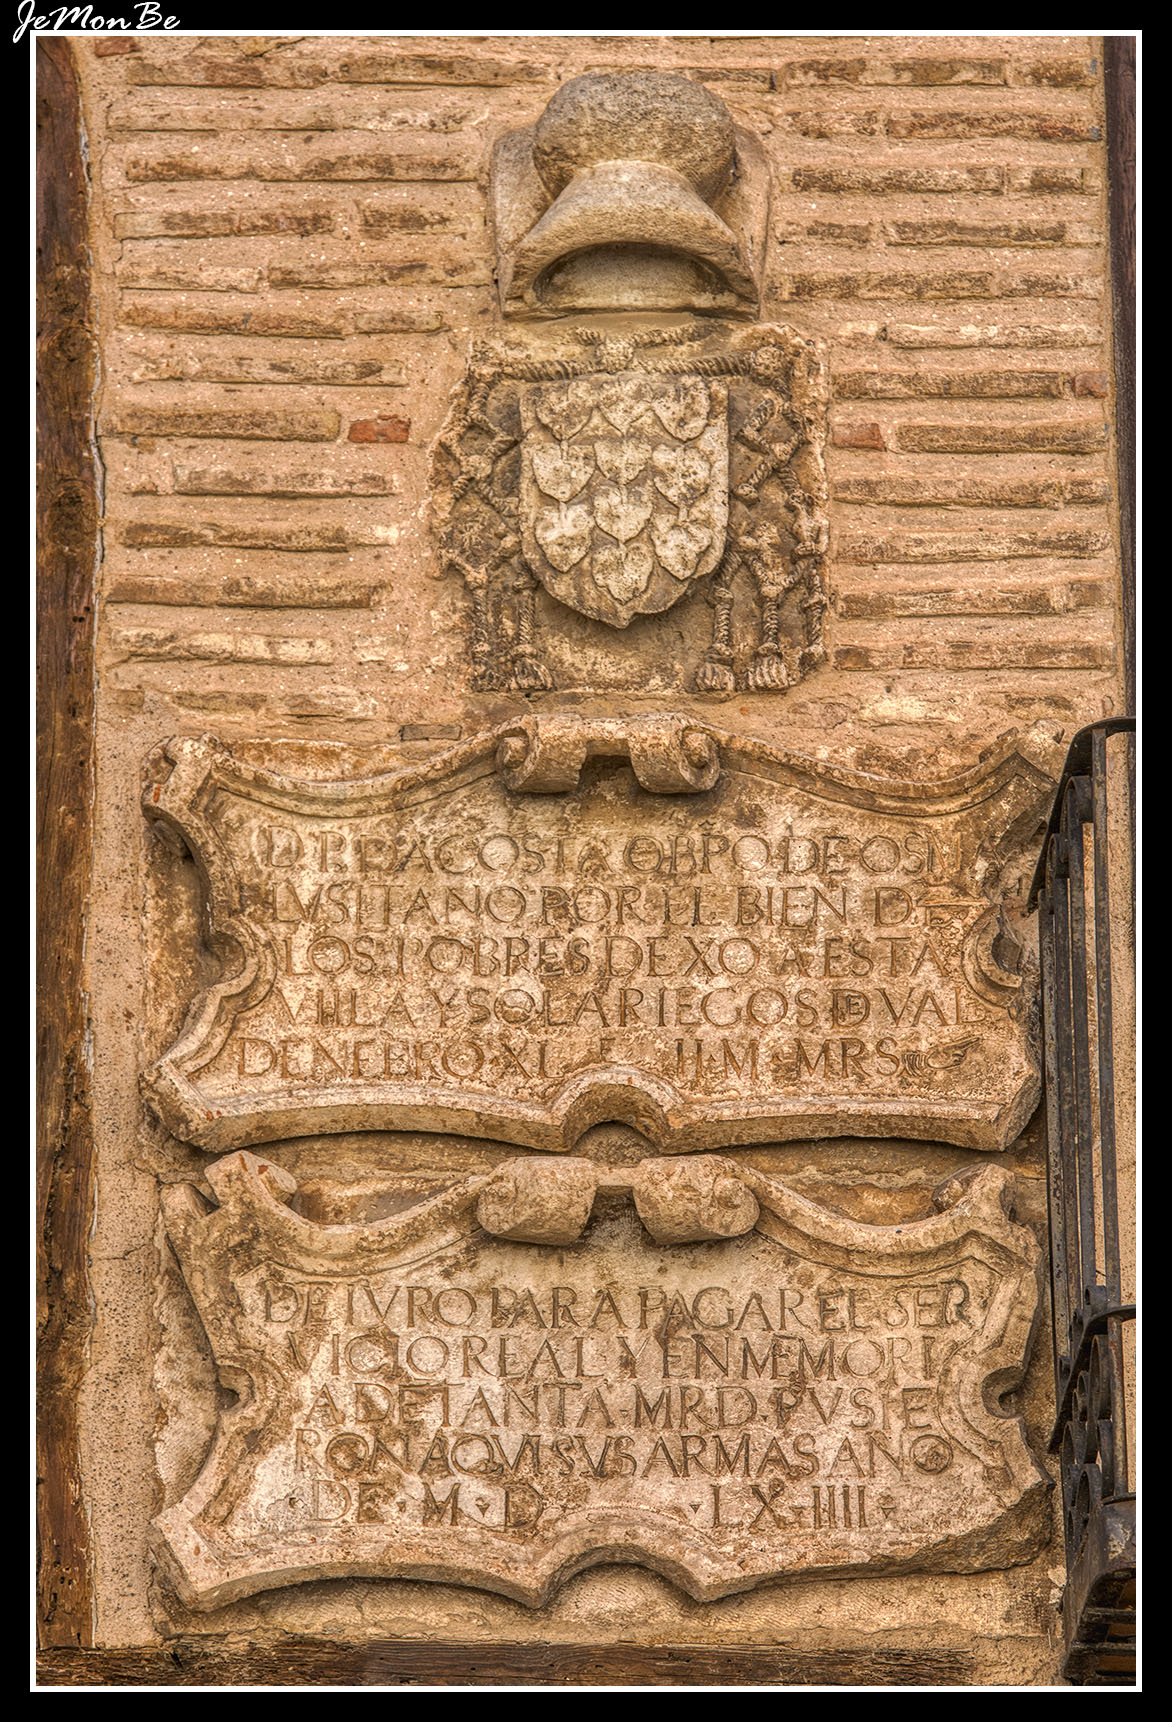 JeMonBe
D P D ACOSTA OBPO DE OSM
LVSITANO POR EL BIEN DE
LOS POBRES DEXO A ESTA
VILLA Y SOLARIEGOS D VAL
DENEBRO XL II M MRS
DE IVRO PARA PAGAR EL SER
VICIO REAL Y EN MEMORI
A DE TANTA MRD PVSIE
RON AQVI SVS ARMAS ANO
DE M D LX IIII